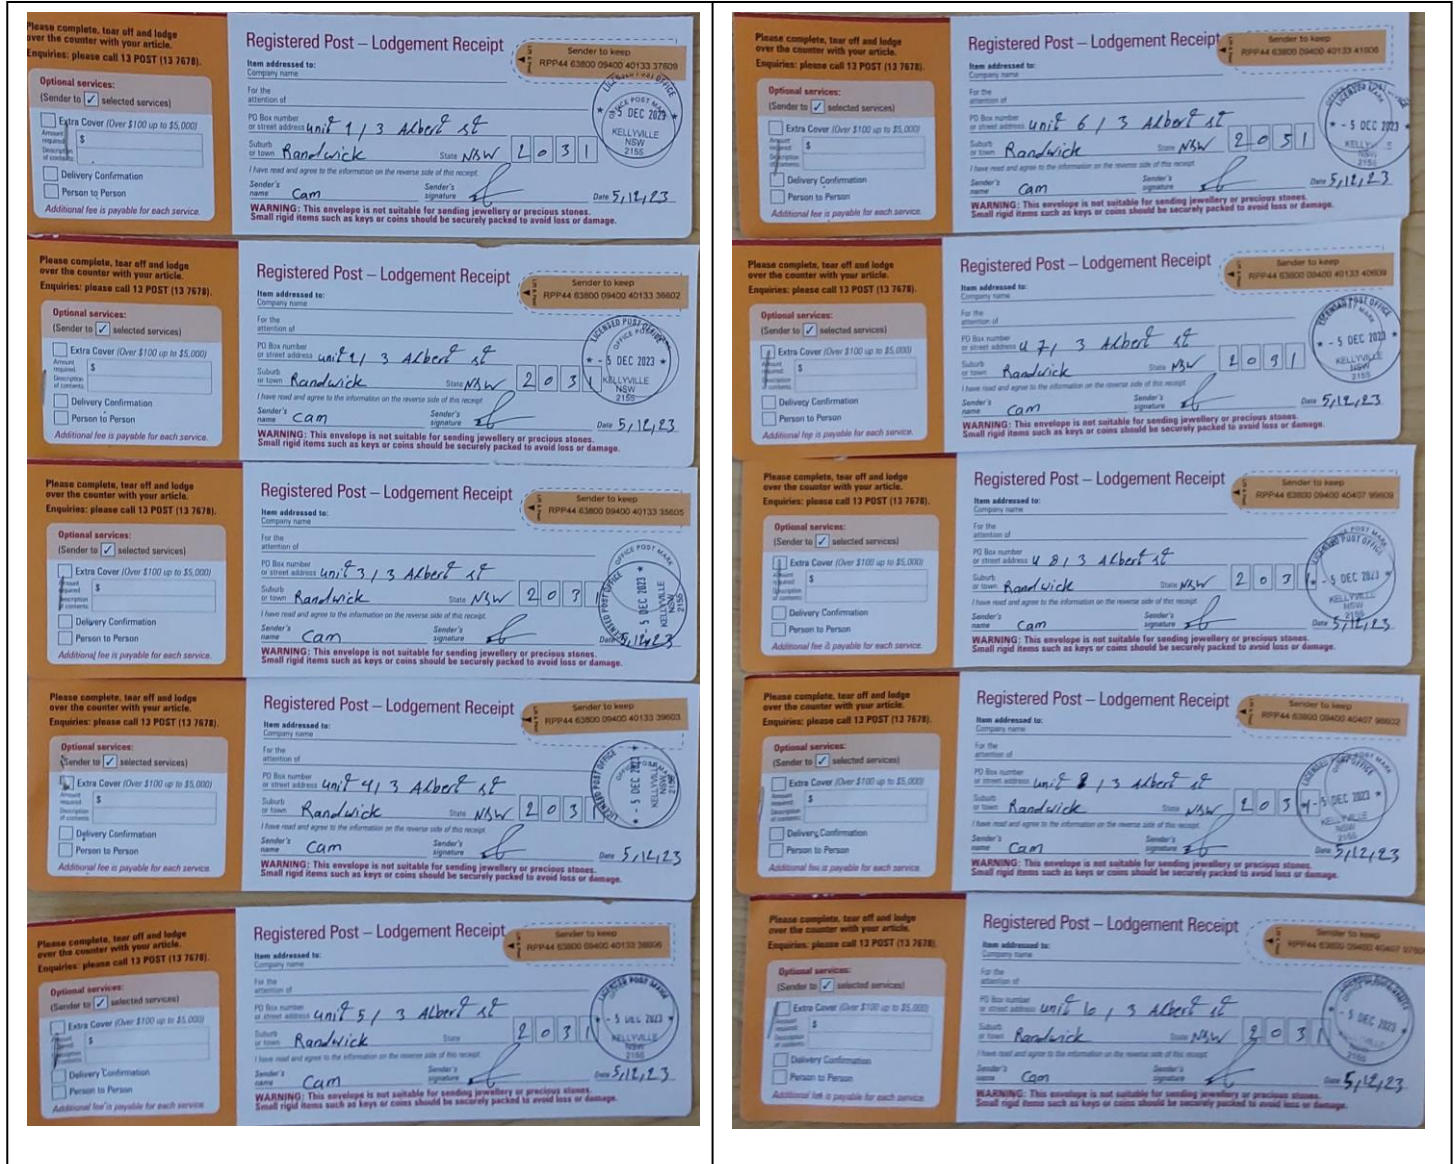 Please complete, tear off and lodge
over the counter with your article.
Enquiries: please call 13 POST (13 7678).
Optional services:
(Sender to ✓ selected services)
Extra Cover (Over $100 up to $5,000)
Amount required $
Description of contents
Delivery Confirmation
Person to Person
Additional fee is payable for each service.
Registered Post – Lodgement Receipt
Sender to keep
RPP44 63800 09400 40133 37609
Item addressed to:
Company name
For the
attention of
PO Box number
or street address unit 1 / 3 Albert st
Suburb
or town Randwick State NSW 2031
I have read and agree to the information on the reverse side of this receipt.
Sender's
name Cam Sender's
signature Date 5/12/23
WARNING: This envelope is not suitable for sending jewellery or precious stones.
Small rigid items such as keys or coins should be securely packed to avoid loss or damage.
LICENSED POST OFFICE
5 DEC 2023
KELLYVILLE
NSW
2155
Please complete, tear off and lodge
over the counter with your article.
Enquiries: please call 13 POST (13 7678).
Optional services:
(Sender to ✓ selected services)
Extra Cover (Over $100 up to $5,000)
Amount required $
Description of contents
Delivery Confirmation
Person to Person
Additional fee is payable for each service.
Registered Post – Lodgement Receipt
Sender to keep
RPP44 63800 09400 40133 36602
Item addressed to:
Company name
For the
attention of
PO Box number
or street address / 3 Albert st
Suburb
or town Randwick State NSW 2031
I have read and agree to the information on the reverse side of this receipt.
Sender's
name Cam Sender's
signature Date 5/12/23
WARNING: This envelope is not suitable for sending jewellery or precious stones.
Small rigid items such as keys or coins should be securely packed to avoid loss or damage.
LICENSED POST OFFICE
- 5 DEC 2023
KELLYVILLE
NSW
2155
Please complete, tear off and lodge
over the counter with your article.
Enquiries: please call 13 POST (13 7678).
Optional services:
(Sender to ✓ selected services)
Extra Cover (Over $100 up to $5,000)
Amount required $
Description of contents
Delivery Confirmation
Person to Person
Additional fee is payable for each service.
Registered Post – Lodgement Receipt
Sender to keep
RPP44 63800 09400 40133 35605
Item addressed to:
Company name
For the
attention of
PO Box number
or street address unit 3 / 3 Albert st
Suburb
or town Randwick State NSW 2031
I have read and agree to the information on the reverse side of this receipt.
Sender's
name Cam Sender's
signature Date 5/12/23
WARNING: This envelope is not suitable for sending jewellery or precious stones.
Small rigid items such as keys or coins should be securely packed to avoid loss or damage.
LICENSED POST OFFICE
OFFICE POST MARK
- 5 DEC 2023
KELLYVILLE
NSW
2155
Please complete, tear off and lodge
over the counter with your article.
Enquiries: please call 13 POST (13 7678).
Optional services:
(Sender to ✓ selected services)
Extra Cover (Over $100 up to $5,000)
Amount required $
Description of contents
Delivery Confirmation
Person to Person
Additional fee is payable for each service.
Registered Post – Lodgement Receipt
Sender to keep
RPP44 63800 09400 40133 39603
Item addressed to:
Company name
For the
attention of
PO Box number
or street address unit 4 / 3 Albert st
Suburb
or town Randwick State NSW 2031
I have read and agree to the information on the reverse side of this receipt.
Sender's
name Cam Sender's
signature Date 5/12/23
WARNING: This envelope is not suitable for sending jewellery or precious stones.
Small rigid items such as keys or coins should be securely packed to avoid loss or damage.
LICENSED POST OFFICE
- 5 DEC 2023
KELLYVILLE
NSW
Please complete, tear off and lodge
over the counter with your article.
Enquiries: please call 13 POST (13 7678).
Optional services:
(Sender to ✓ selected services)
Extra Cover (Over $100 up to $5,000)
Amount required $
Description of contents
Delivery Confirmation
Person to Person
Additional fee is payable for each service.
Registered Post – Lodgement Receipt
Sender to keep
RPP44 63800 09400 40133 38606
Item addressed to:
Company name
For the
attention of
PO Box number
or street address unit 5 / 3 Albert st
Suburb
or town Randwick State 2031
I have read and agree to the information on the reverse side of this receipt.
Sender's
name Cam Sender's
signature Date 5/12/23
WARNING: This envelope is not suitable for sending jewellery or precious stones.
Small rigid items such as keys or coins should be securely packed to avoid loss or damage.
- 5 DEC 2023
KELLYVILLE
NSW
2155
Please complete, tear off and lodge
over the counter with your article.
Enquiries: please call 13 POST (13 7678).
Optional services:
(Sender to ✓ selected services)
Extra Cover (Over $100 up to $5,000)
Amount required $
Description of contents
Delivery Confirmation
Person to Person
Additional fee is payable for each service.
Registered Post – Lodgement Receipt
Sender to keep
RPP44 63800 09400 40133 41606
Item addressed to:
Company name
For the
attention of
PO Box number
or street address unit 6 / 3 Albert st
Suburb
or town Randwick State NSW 2051
I have read and agree to the information on the reverse side of this receipt.
Sender's
name Cam Sender's
signature Date 5/12/23
WARNING: This envelope is not suitable for sending jewellery or precious stones.
Small rigid items such as keys or coins should be securely packed to avoid loss or damage.
- 5 DEC 2023
NSW
2155
Please complete, tear off and lodge
over the counter with your article.
Enquiries: please call 13 POST (13 7678).
Optional services:
(Sender to ✓ selected services)
Extra Cover (Over $100 up to $5,000)
Amount required $
Description of contents
Delivery Confirmation
Person to Person
Additional fee is payable for each service.
Registered Post – Lodgement Receipt
Sender to keep
RPP44 63800 09400 40133 40609
Item addressed to:
Company name
For the
attention of
PO Box number
or street address u 7 / 3 Albert st
Suburb
or town Randwick State NSW 2031
I have read and agree to the information on the reverse side of this receipt.
Sender's
name Cam Sender's
signature Date 5/12/23
WARNING: This envelope is not suitable for sending jewellery or precious stones.
Small rigid items such as keys or coins should be securely packed to avoid loss or damage.
- 5 DEC 2023
KELLYVILLE
NSW
2155
Please complete, tear off and lodge
over the counter with your article.
Enquiries: please call 13 POST (13 7678).
Optional services:
(Sender to ✓ selected services)
Extra Cover (Over $100 up to $5,000)
Amount required $
Description of contents
Delivery Confirmation
Person to Person
Additional fee is payable for each service.
Registered Post – Lodgement Receipt
Sender to keep
RPP44 63800 09400 40407 99609
Item addressed to:
Company name
For the
attention of
PO Box number
or street address u 8 / 3 Albert st
Suburb
or town Randwick State NSW 2031
I have read and agree to the information on the reverse side of this receipt.
Sender's
name Cam Sender's
signature Date 5/12/23
WARNING: This envelope is not suitable for sending jewellery or precious stones.
Small rigid items such as keys or coins should be securely packed to avoid loss or damage.
- 5 DEC 2023
KELLYVILLE
NSW
2155
Please complete, tear off and lodge
over the counter with your article.
Enquiries: please call 13 POST (13 7678).
Optional services:
(Sender to ✓ selected services)
Extra Cover (Over $100 up to $5,000)
Amount required $
Description of contents
Delivery Confirmation
Person to Person
Additional fee is payable for each service.
Registered Post – Lodgement Receipt
Sender to keep
RPP44 63800 09400 40407 98602
Item addressed to:
Company name
For the
attention of
PO Box number
or street address unit / 3 Albert st
Suburb
or town Randwick State NSW 2031
I have read and agree to the information on the reverse side of this receipt.
Sender's
name Cam Sender's
signature Date 5/12/23
WARNING: This envelope is not suitable for sending jewellery or precious stones.
Small rigid items such as keys or coins should be securely packed to avoid loss or damage.
- 5 DEC 2023
KELLYVILLE
NSW
2155
Please complete, tear off and lodge
over the counter with your article.
Enquiries: please call 13 POST (13 7678).
Optional services:
(Sender to ✓ selected services)
Extra Cover (Over $100 up to $5,000)
Amount required $
Description of contents
Delivery Confirmation
Person to Person
Additional fee is payable for each service.
Registered Post – Lodgement Receipt
Sender to keep
RPP44 63800 09400 40407
Item addressed to:
Company name
For the
attention of
PO Box number
or street address unit 10 / 3 Albert st
Suburb
or town Randwick State NSW 2031
I have read and agree to the information on the reverse side of this receipt.
Sender's
name Cam Sender's
signature Date 5/12/23
WARNING: This envelope is not suitable for sending jewellery or precious stones.
Small rigid items such as keys or coins should be securely packed to avoid loss or damage.
- 5 DEC 2023
2155